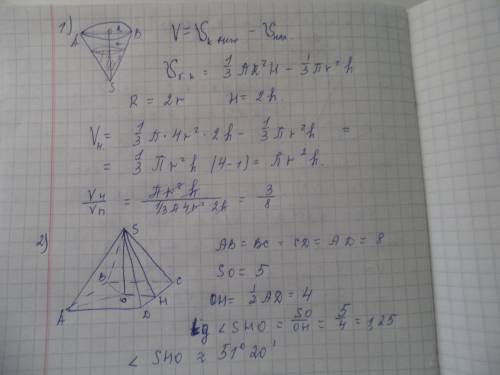 1)
A B R S
V = V к. полн. - V
V = 1/3 πR²H - 1/3 πr²h
R = 2r H = 2h
Vч = 1/3 π · 4r² · 2h - 1/3 πr²h =
= 1/3 πr²h (4-1) = πr²h.
Vч/Vп = πr²h / 1/3 π4r² 2h = 3/8
2)
S
B C
O H
A D
AB = BC = CD = AD = 8
SO = 5
OH = 1/2 AD = 4
tg ∠SHO = SO/OH = 5/4 = 1,25
∠ SHO ≈ 51° 20'